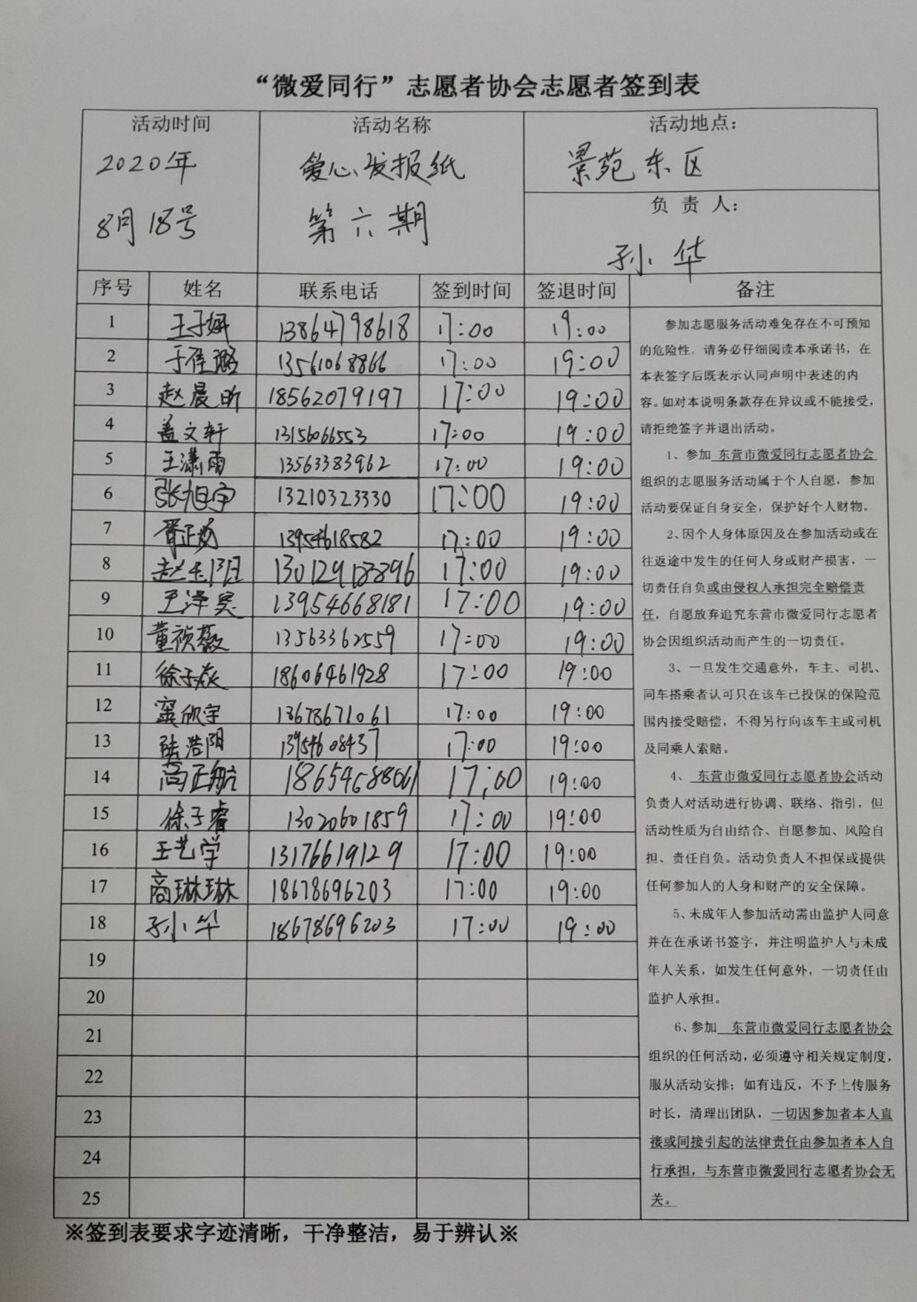 “微爱同行”志愿者协会志愿者签到表
活动时间 活动名称 活动地点：
2020年 爱心发报纸 景苑东区
8月18号 第六期 负责人：
孙小华
序号 姓名 联系电话 签到时间 签退时间 备注
1 王子妍 13864798618 17:00 19:00
2 于佳璐 13561068866 17:00 19:00
3 赵晨昕 18562079197 17:00 19:00
4 盖文轩 13156066553 17:00 19:00
5 王潇雨 13563383962 17:00 19:00
6 张旭宇 13210323330 17:00 19:00
7 13954618582 17:00 19:00
8 17:00 19:00
9 王泽昊 13954668181 17:00 19:00
10 董祯薇 13563362559 17:00 19:00
11 徐子焱 18606461928 17:00 19:00
12 窦欣宇 13678671061 17:00 19:00
13 陆浩阳 13954608437 17:00 19:00
14 高正航 18654688061 17:00 19:00
15 徐子睿 13020601859 17:00 19:00
16 王艺学 13176619129 17:00 19:00
17 高琳琳 18678696203 17:00 19:00
18 孙小华 18678696203 17:00 19:00
19
20
21
22
23
24
25
参加志愿服务活动难免存在不可预知
的危险性，请务必仔细阅读本承诺书，在
本表签字后既表示认同声明中表述的内
容。如对本说明条款存在异议或不能接受，
请拒绝签字并退出活动。
1、参加 东营市微爱同行志愿者协会
组织的志愿服务活动属于个人自愿，参加
活动要保证自身安全，保护好个人财物。
2、因个人身体原因及在参加活动或在
往返途中发生的任何人身或财产损害，一
切责任自负或由侵权人承担完全赔偿责
任，自愿放弃追究东营市微爱同行志愿者
协会因组织活动而产生的一切责任。
3、一旦发生交通意外，车主、司机、
同车搭乘者认可只在该车已投保的保险范
围内接受赔偿，不得另行向该车主或司机
及同乘人索赔。
4、东营市微爱同行志愿者协会活动
负责人对活动进行协调、联络、指引，但
活动性质为自由结合、自愿参加、风险自
担、责任自负。活动负责人不担保或提供
任何参加人的人身和财产的安全保障。
5、未成年人参加活动需由监护人同意
并在在承诺书签字，并注明监护人与未成
年人关系，如发生任何意外，一切责任由
监护人承担。
6、参加 东营市微爱同行志愿者协会
组织的任何活动，必须遵守相关规定制度，
服从活动安排；如有违反，不予上传服务
时长，清理出团队，一切因参加者本人直
接或间接引起的法律责任由参加者本人自
行承担，与东营市微爱同行志愿者协会无
关。
※签到表要求字迹清晰，干净整洁，易于辨认※